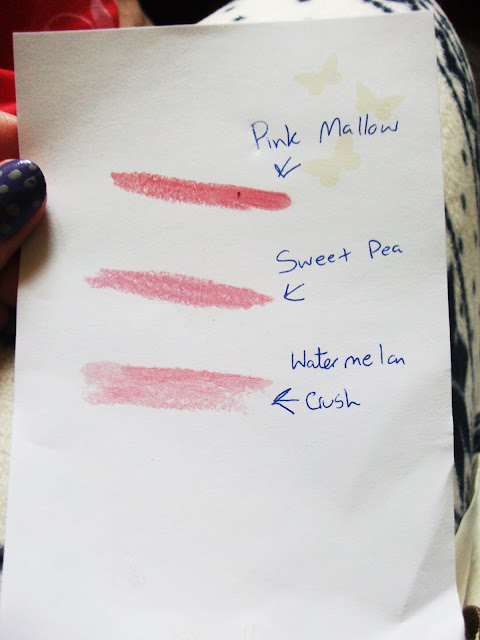 Pink Mallow
Sweet Pea
Watermelon
Crush